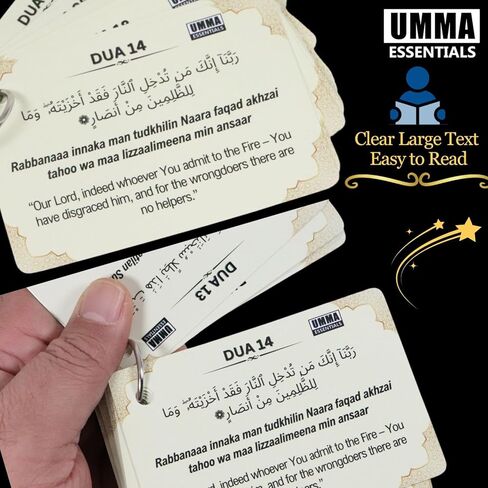 UMMA
ESSENTIALS
Clear Large Text
Easy to Read
DUA 14
رَبَّنَآ إِنَّكَ مَن تُدْخِلِ ٱلنَّارَ فَقَدْ أَخْزَيْتَهُۥ ۖ وَمَا
لِلظَّٰلِمِينَ مِنْ أَنصَارٍ
Rabbanaaa innaka man tudkhilin Naara faqad akhzai
tahoo wa maa lizzaalimeena min ansaar
“Our Lord, indeed whoever You admit to the Fire – You
have disgraced him, and for the wrongdoers there are
no helpers.”
DUA 13
UMMA
ESSENTIALS
UMMA
ESSENTIALS
DUA 14
رَبَّنَآ إِنَّكَ مَن تُدْخِلِ ٱلنَّارَ فَقَدْ أَخْزَيْتَهُۥ ۖ وَمَا
لِلظَّٰلِمِينَ مِنْ أَنصَارٍ
Rabbanaaa innaka man tudkhilin Naara faqad akhzai
tahoo wa maa lizzaalimeena min ansaar
indeed whoever You admit to the Fire – You
him, and for the wrongdoers there are